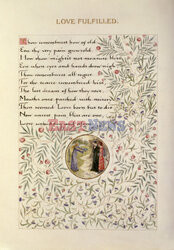 LOVE FULFILLED.
Thou rememberest how of old
E'en thy very pain grew cold,
How thou might'st not measure bliss
E'en when eyes and hands drew nigh.
Thou rememberest all regret
For the scarce remembered kiss,
The lost dream of how they met,
Mouths once parched with misery.
Then seemed Love born but to die,
Now unrest, pain, bliss are one,
Love